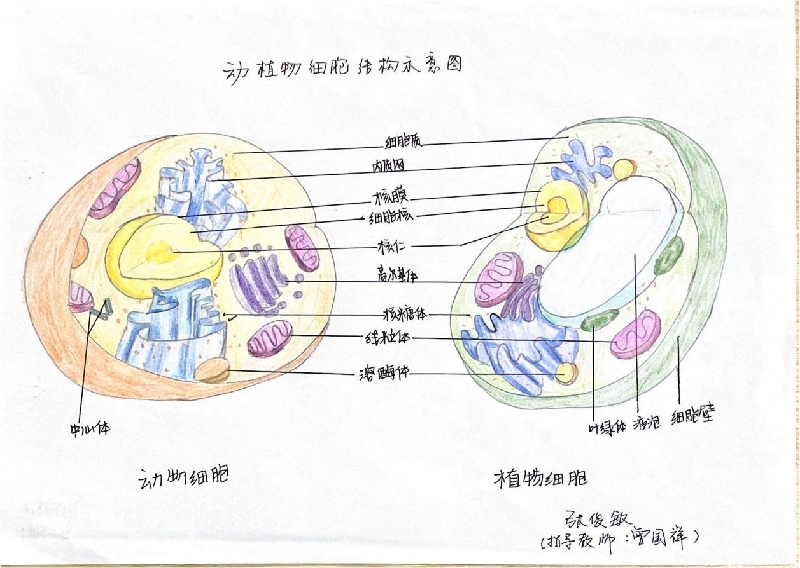 动植物细胞结构示意图
细胞质
内质网
核膜
细胞核
核仁
高尔基体
核糖体
线粒体
溶酶体
中心体
叶绿体 液泡 细胞壁
动物细胞
植物细胞
张俊敏
(指导教师：曾国祥)